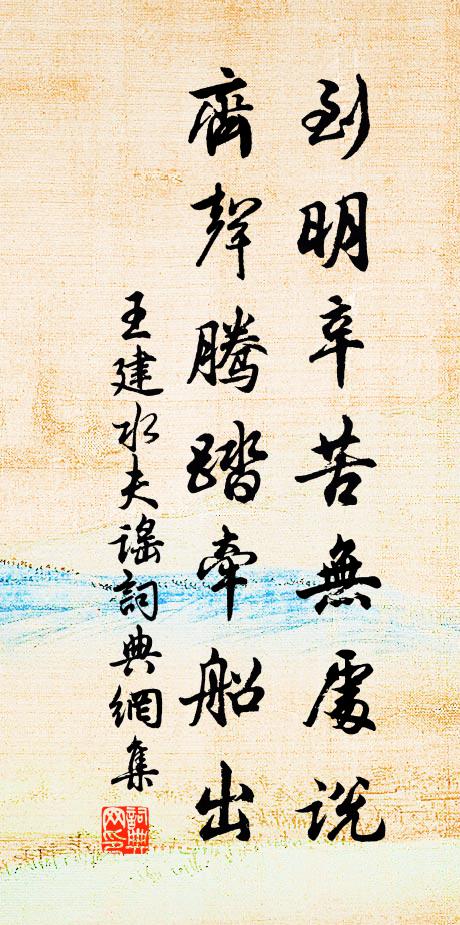 到明辛苦無處説
齊聲騰踏牽船出
王建水夫謠詞典網集
詞典網印